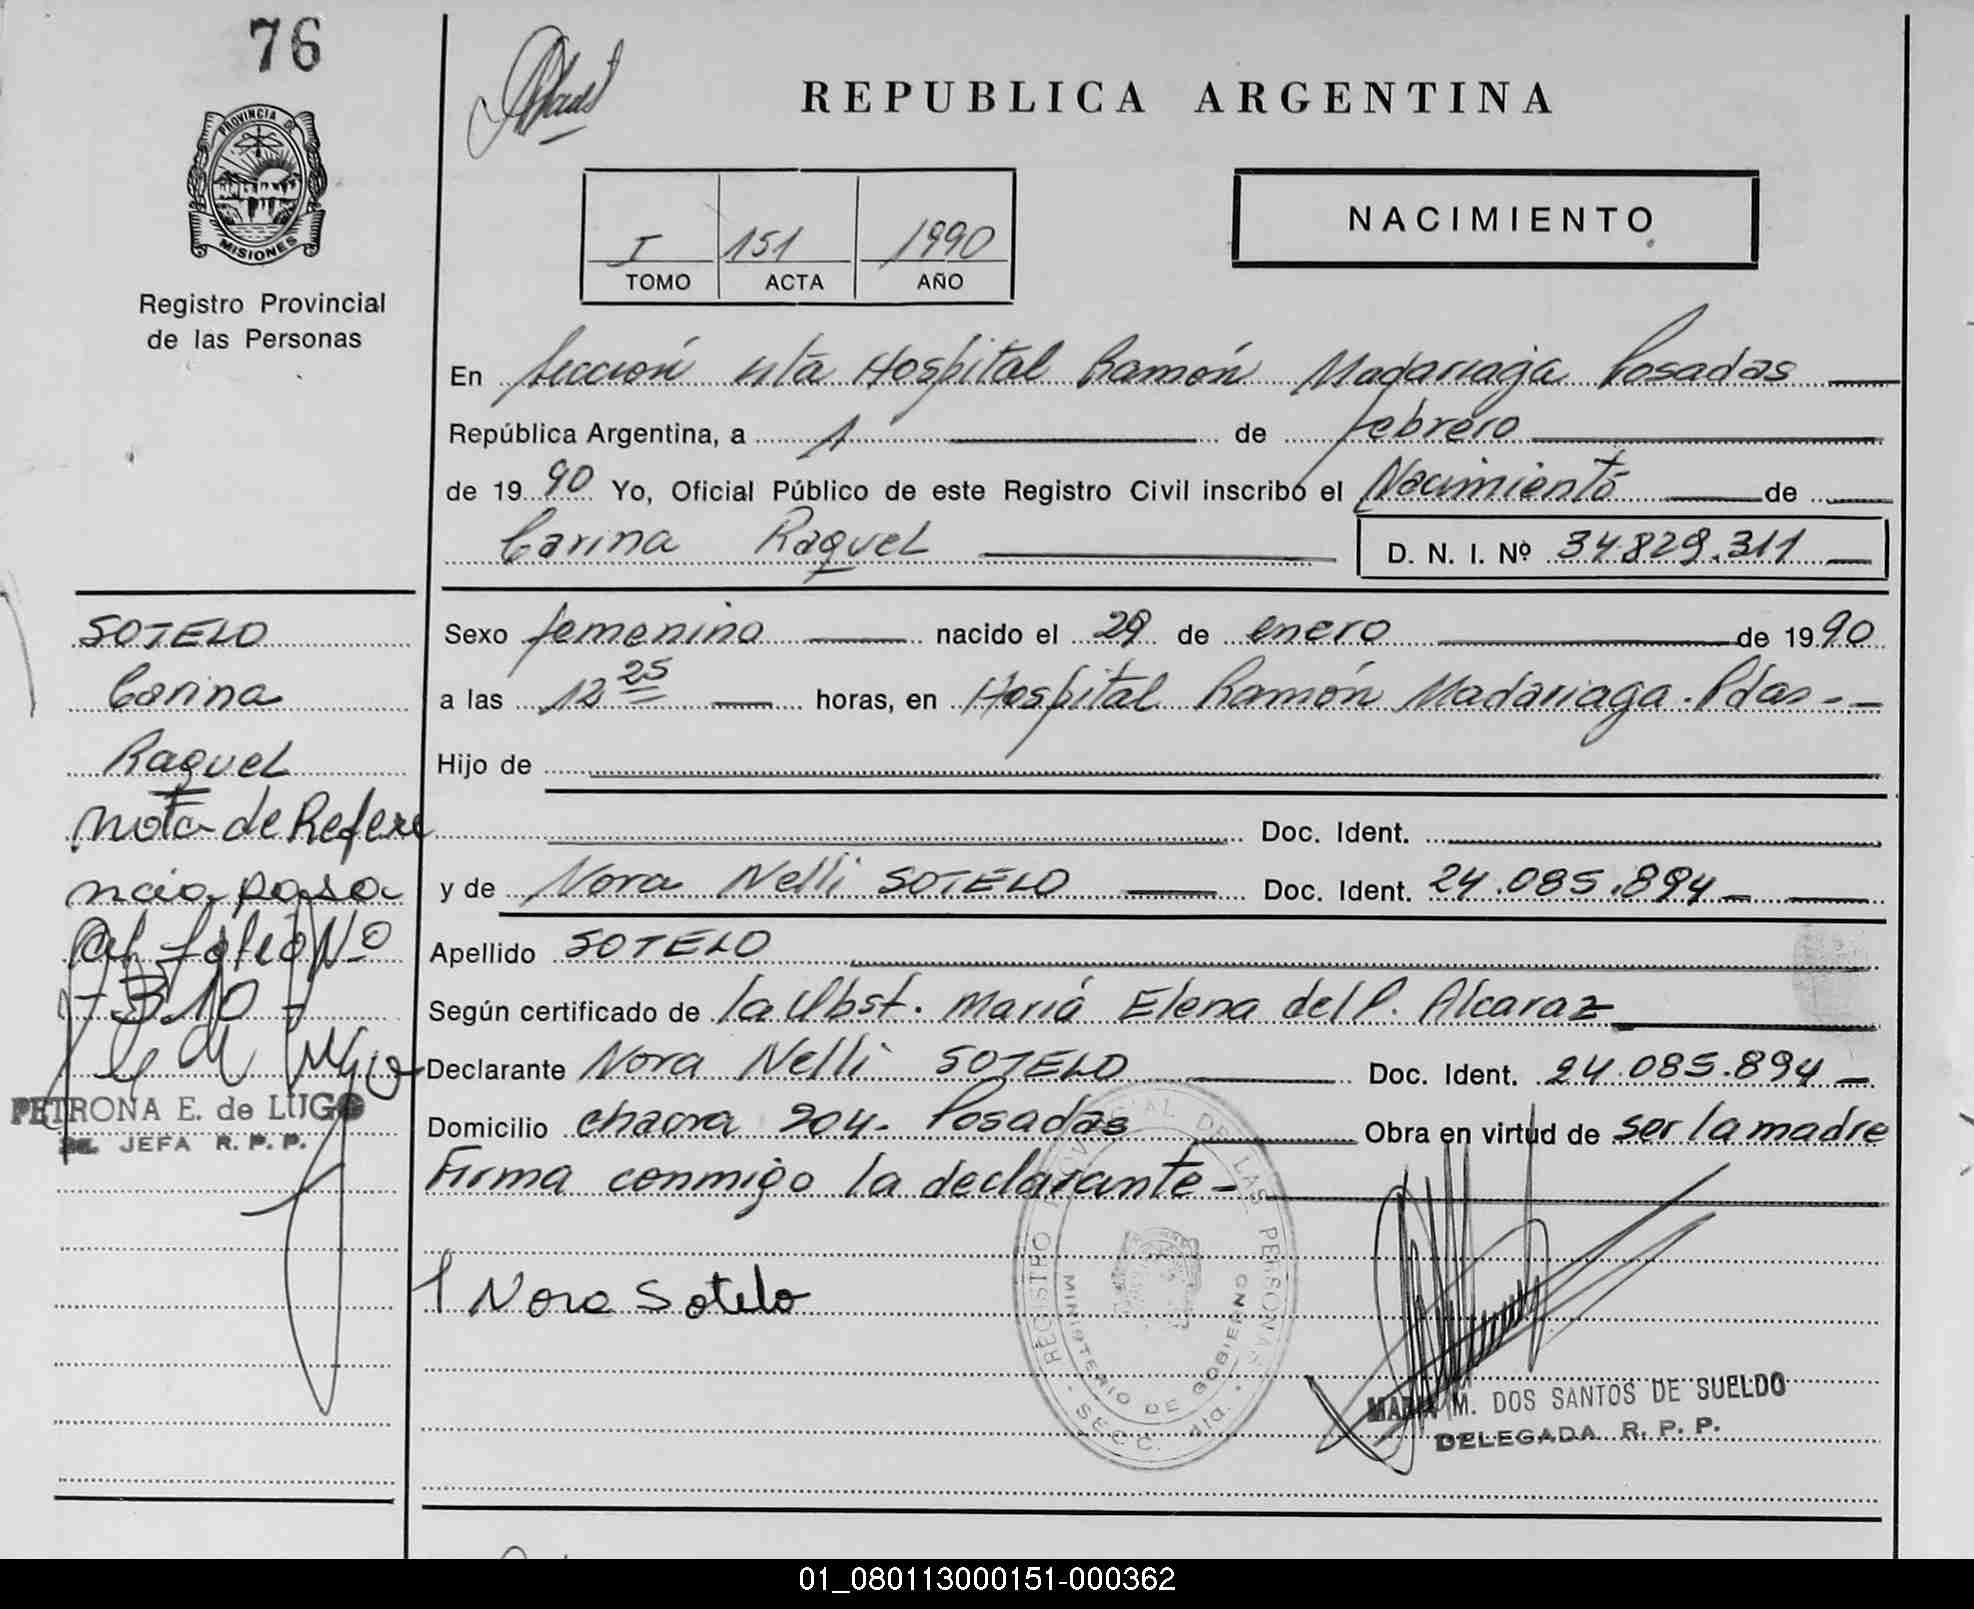 76
PROVINCIA DE
MISIONES
Registro Provincial
de las Personas
REPUBLICA ARGENTINA
I 151 1990
TOMO ACTA AÑO
NACIMIENTO
En Sección 4ta Hospital Ramón Madariaga Posadas
República Argentina, a 1 de febrero
de 1990 Yo, Oficial Público de este Registro Civil inscribo el Nacimiento de
Carina Raquel D. N. I. Nº 34.829.311
Sexo femenino nacido el 29 de enero de 1990
a las 12 25 horas, en Hospital Ramón Madariaga. Pdas--
Hijo de
Doc. Ident.
y de Nora Nelli SOTELO Doc. Ident. 24.085.894
Apellido SOTELO
Según certificado de la Obst. María Elena del P. Alcaraz
Declarante Nora Nelli SOTELO Doc. Ident. 24.085.894
Domicilio chacra 204. Posadas Obra en virtud de ser la madre
Firma conmigo la declarante-
Nora Sotelo
SOTELO
Carina
Raquel
nota de Refere
ncia pasa
al folio Nº
-310-
PETRONA E. de LUGO
JEFA R. P. P.
REGISTRO PROVINCIAL DE LAS PERSONAS
MINISTERIO DE GOBIERNO
SECC. 4ta.
MARIA M. DOS SANTOS DE SUELDO
DELEGADA R. P. P.
01_080113000151-000362